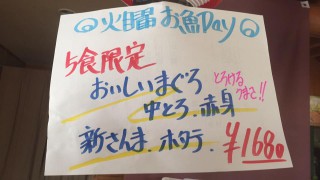 火曜お魚Day
5食限定
おいしいまぐろ
とろける
うまさ!!
中とろ.赤身
新さんま.ホタテ.
¥1680